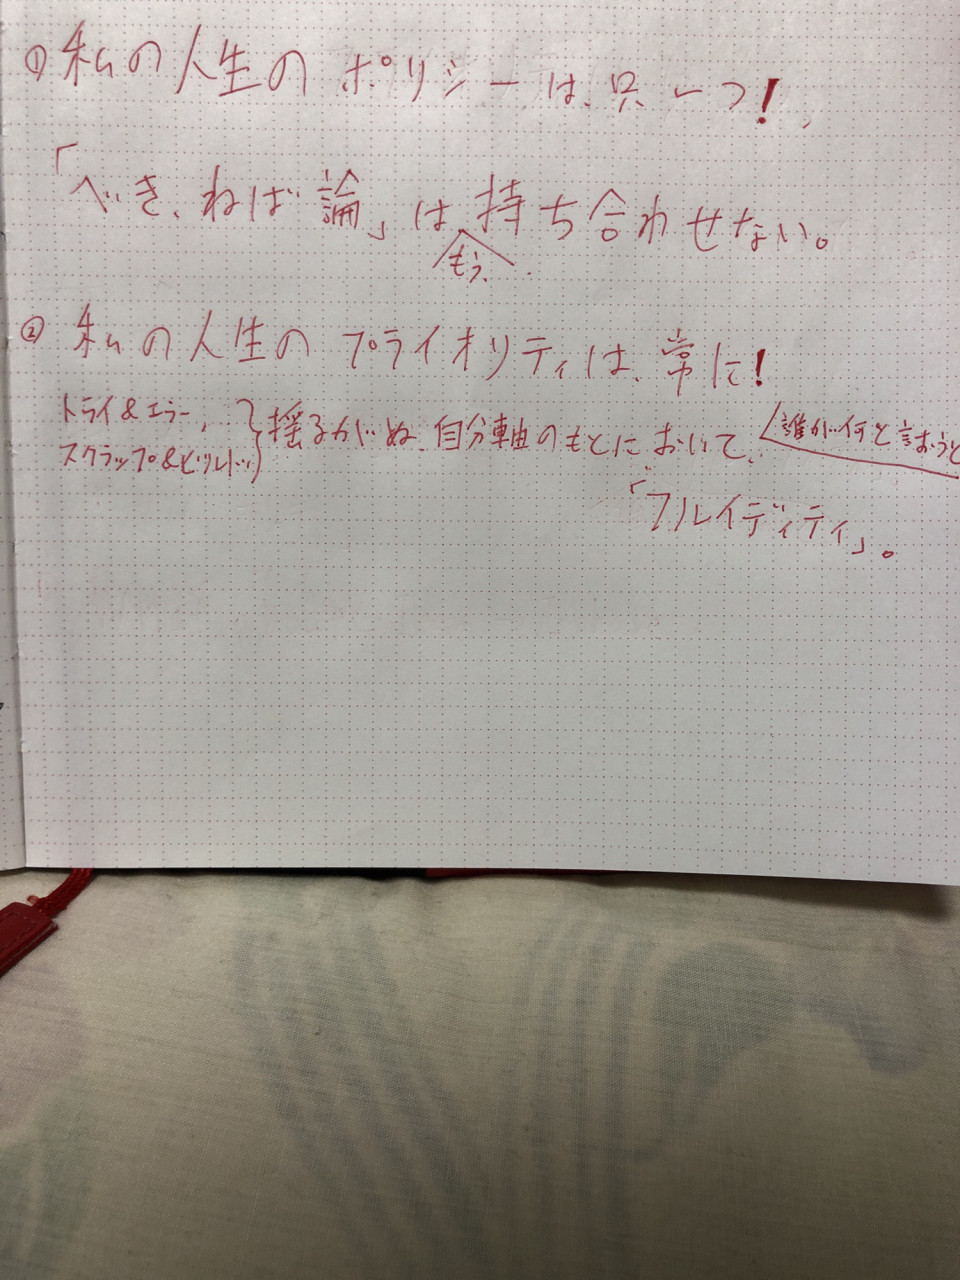 ① 私の人生のポリシーは、只一つ!
「べき、ねば論」は、持ち合わせない。
もう、
② 私の人生のプライオリティは、常に!
トライ&エラー、
スクラップ&ビルド
揺るがぬ、自分軸のもとにおいて、
誰が何と言おうと
「フルイディティ」。